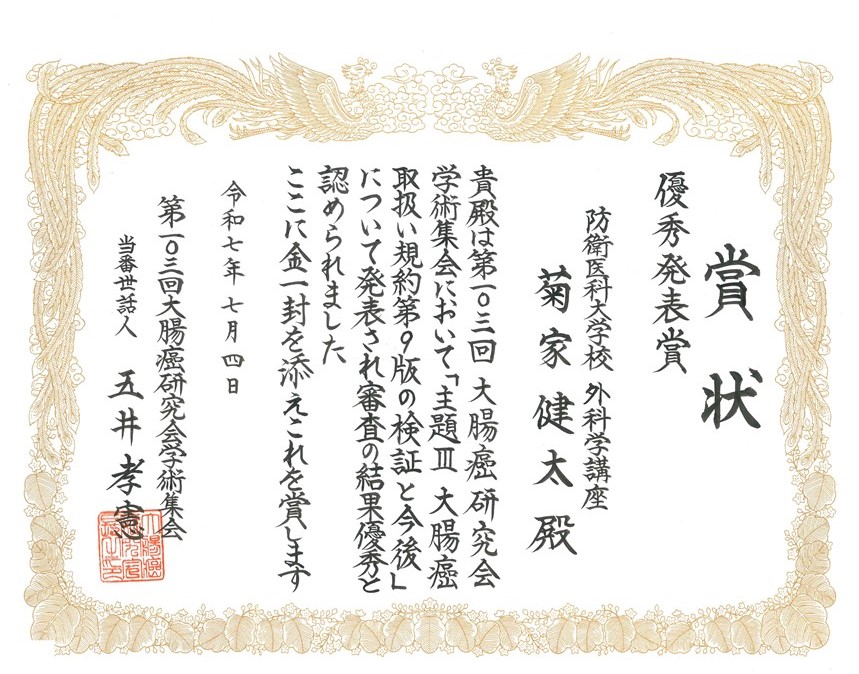 賞状
優秀発表賞
防衛医科大学校 外科学講座
菊家健太殿
貴殿は第一〇三回 大腸癌研究会
学術集会において「主題Ⅲ 大腸癌
取扱い規約第9版の検証と今後」
について発表され審査の結果優秀と
認められました
ここに金一封を添えこれを賞します
令和七年七月四日
第一〇三回大腸癌研究会学術集会
当番世話人 五井孝憲